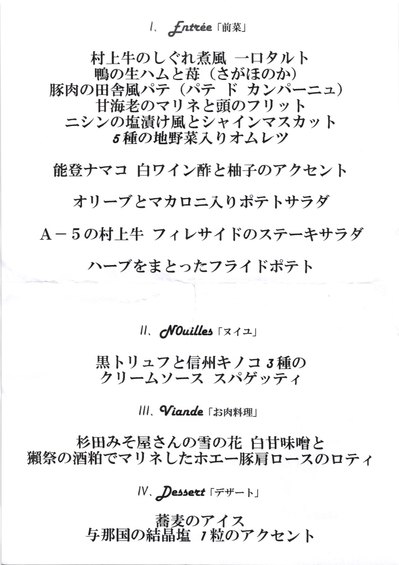 I. Entrée「前菜」
村上牛のしぐれ煮風 一口タルト
鴨の生ハムと苺（さがほのか）
豚肉の田舎風パテ（パテ ド カンパーニュ）
甘海老のマリネと頭のフリット
ニシンの塩漬け風とシャインマスカット
5種の地野菜入りオムレツ
能登ナマコ 白ワイン酢と柚子のアクセント
オリーブとマカロニ入りポテトサラダ
A－5の村上牛 フィレサイドのステーキサラダ
ハーブをまとったフライドポテト
II. NOuilles「ヌイユ」
黒トリュフと信州キノコ3種の
クリームソース スパゲッティ
III. Viande「お肉料理」
杉田みそ屋さんの雪の花 白甘味噌と
獺祭の酒粕でマリネしたホエー豚肩ロースのロティ
IV. Dessert「デザート」
蕎麦のアイス
与那国の結晶塩 1粒のアクセント